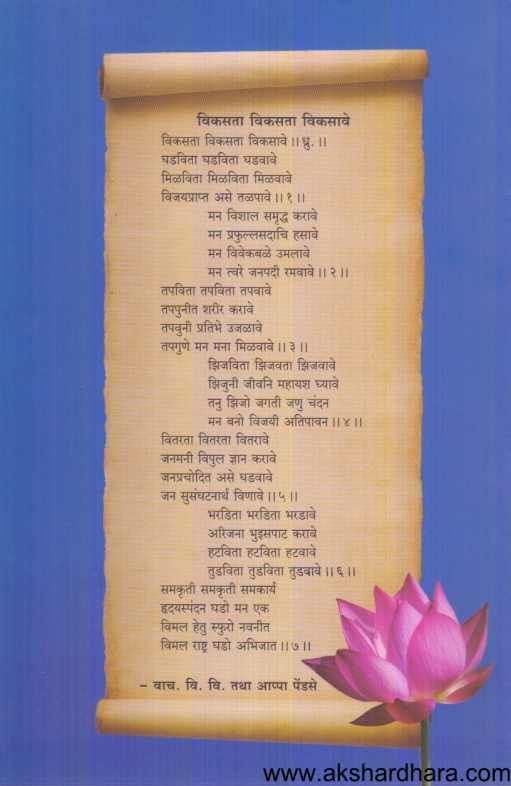 विकसता विकसता विकसावे
विकसता विकसता विकसावे ।। ध्रु. ।।
घडविता घडविता घडवावे
मिळविता मिळविता मिळवावे
विजयप्राप्त असे तळपावे ।। १ ।।
मन विशाल समृद्ध करावे
मन प्रफुल्लसदाचि हसावे
मन विवेकबळे उमलावे
मन त्वरे जनपदी रमवावे ।। २ ।।
तपविता तपविता तपवावे
तपपुनीत शरीर करावे
तपवुनी प्रतिभे उजळावे
तपगुणे मन मना मिळवावे ।। ३ ।।
झिजविता झिजवता झिजवावे
झिजुनी जीवनि महायश घ्यावे
तनु झिजो जगती जणु चंदन
मन बनो विजयी अतिपावन ।। ४ ।।
वितरता वितरता वितरावे
जनमनी विपुल ज्ञान करावे
जनप्रचोदित असे घडवावे
जन सुसंघटनार्थ विणावे ।। ५ ।।
भरडिता भरडिता भरडावे
अरिजना भुइसपाट करावे
हटविता हटविता हटवावे
तुडविता तुडविता तुडवावे ।। ६ ।।
समकृती समकृती समकार्य
हृदयस्पंदन घडो मन एक
विमल हेतु स्फुरो नवनीत
विमल राष्ट्र घडो अभिजात ।। ७ ।।
– वाच. वि. वि. तथा आप्पा पेंडसे
www.akshardhara.com